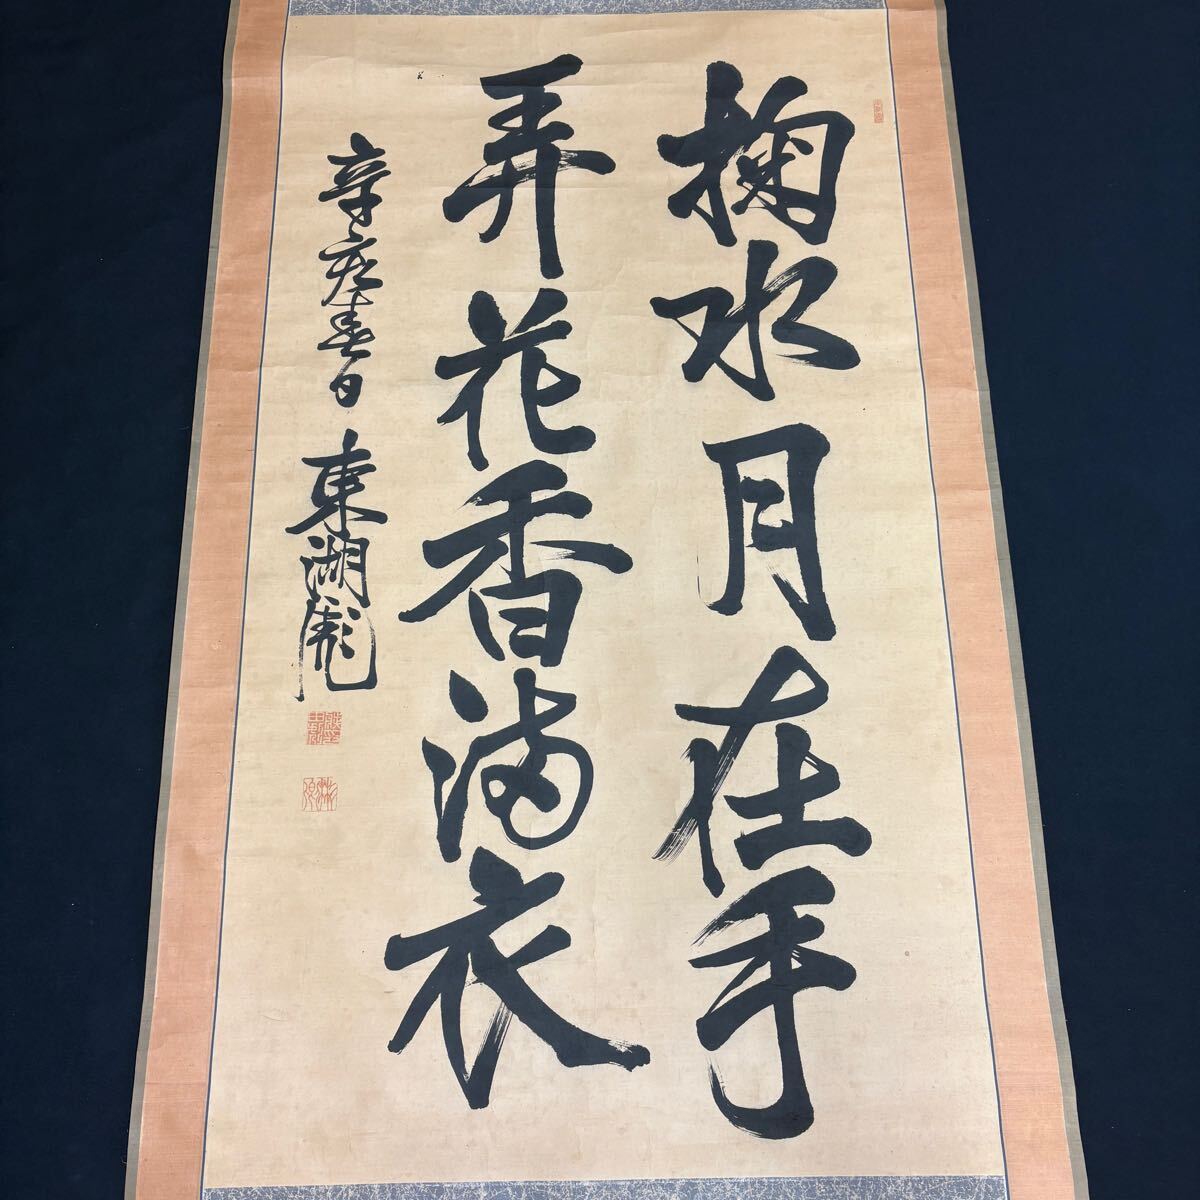 掬水月在手
弄花香満衣
辛庚春日 東湖彪